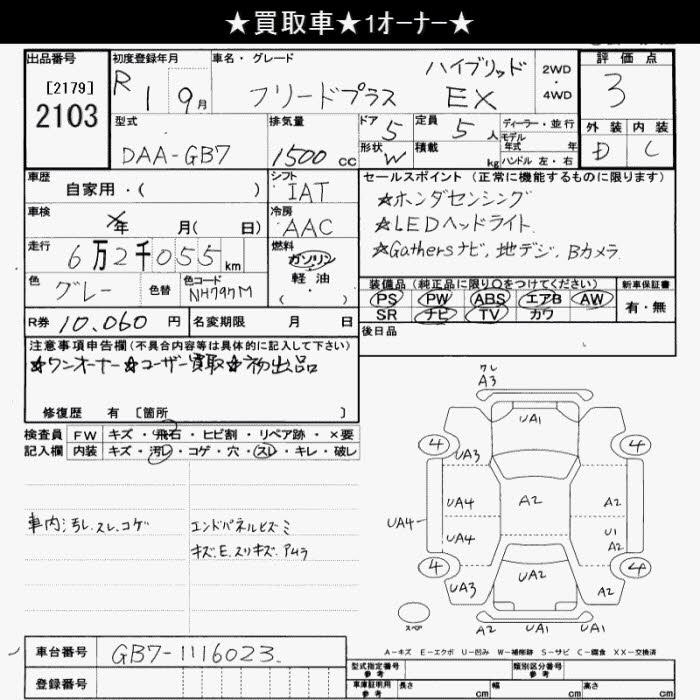 ★買取車★1オーナー★
出品番号 初度登録年月 車名・グレード 評価点
[2179] R 1 9月 フリードプラス ハイブリッド EX 2WD・4WD 3
2103
型式 排気量 ドア 定員 ディーラー・並行 外装 内装
DAA-GB7 1500cc 5 5人 モデル年式 年 D C
形状 W 積載 kg ハンドル 左・右
車歴 シフト セールスポイント (正常に機能するものに限ります)
自家用・( ) IAT ☆ホンダセンシング
車検 年 月( 日) 冷房 AAC ☆LEDヘッドライト
走行 6万2千055km 燃料 ガソリン・軽油・( ) ☆Gathersナビ,地デジ,Bカメラ
色 グレー 色替 色コード NH797M
装備品 (純正品に限り○をつけてください) 新車保証書
PS PW ABS エアB AW 有・無
SR ナビ TV カワ
R券 10,060円 名変期限 月 日 後日品
注意事項申告欄(不具合内容等は具体的に記入して下さい)
☆ワンオーナー☆ユーザー買取☆初出品
修復歴 有 [箇所 ]
検査員 FW キズ・飛石・ヒビ割・リペア跡・×要
記入欄 内装 キズ・汚レ・コゲ・穴・スレ・キレ・破レ
車内汚レ.スレ.コゲ
エンドパネルヒズミ
キズ.E.スリキズ.アムラ
ワレ
A3
UA1
4 4
UA3
UA4 A2 A2
UA4
UA4 U1
A2
4 4
UA3 UA2 A2
スペア A2 UA1 UA1
A-キズ E-エクボ U-凹み W-補修跡 S-サビ C-腐食 XX-交換済
車台番号 GB7-1116023
登録番号
型式指定番号 参考 類別区分番号 参考
車庫証明用 参考 長さ cm 幅 cm 高さ cm